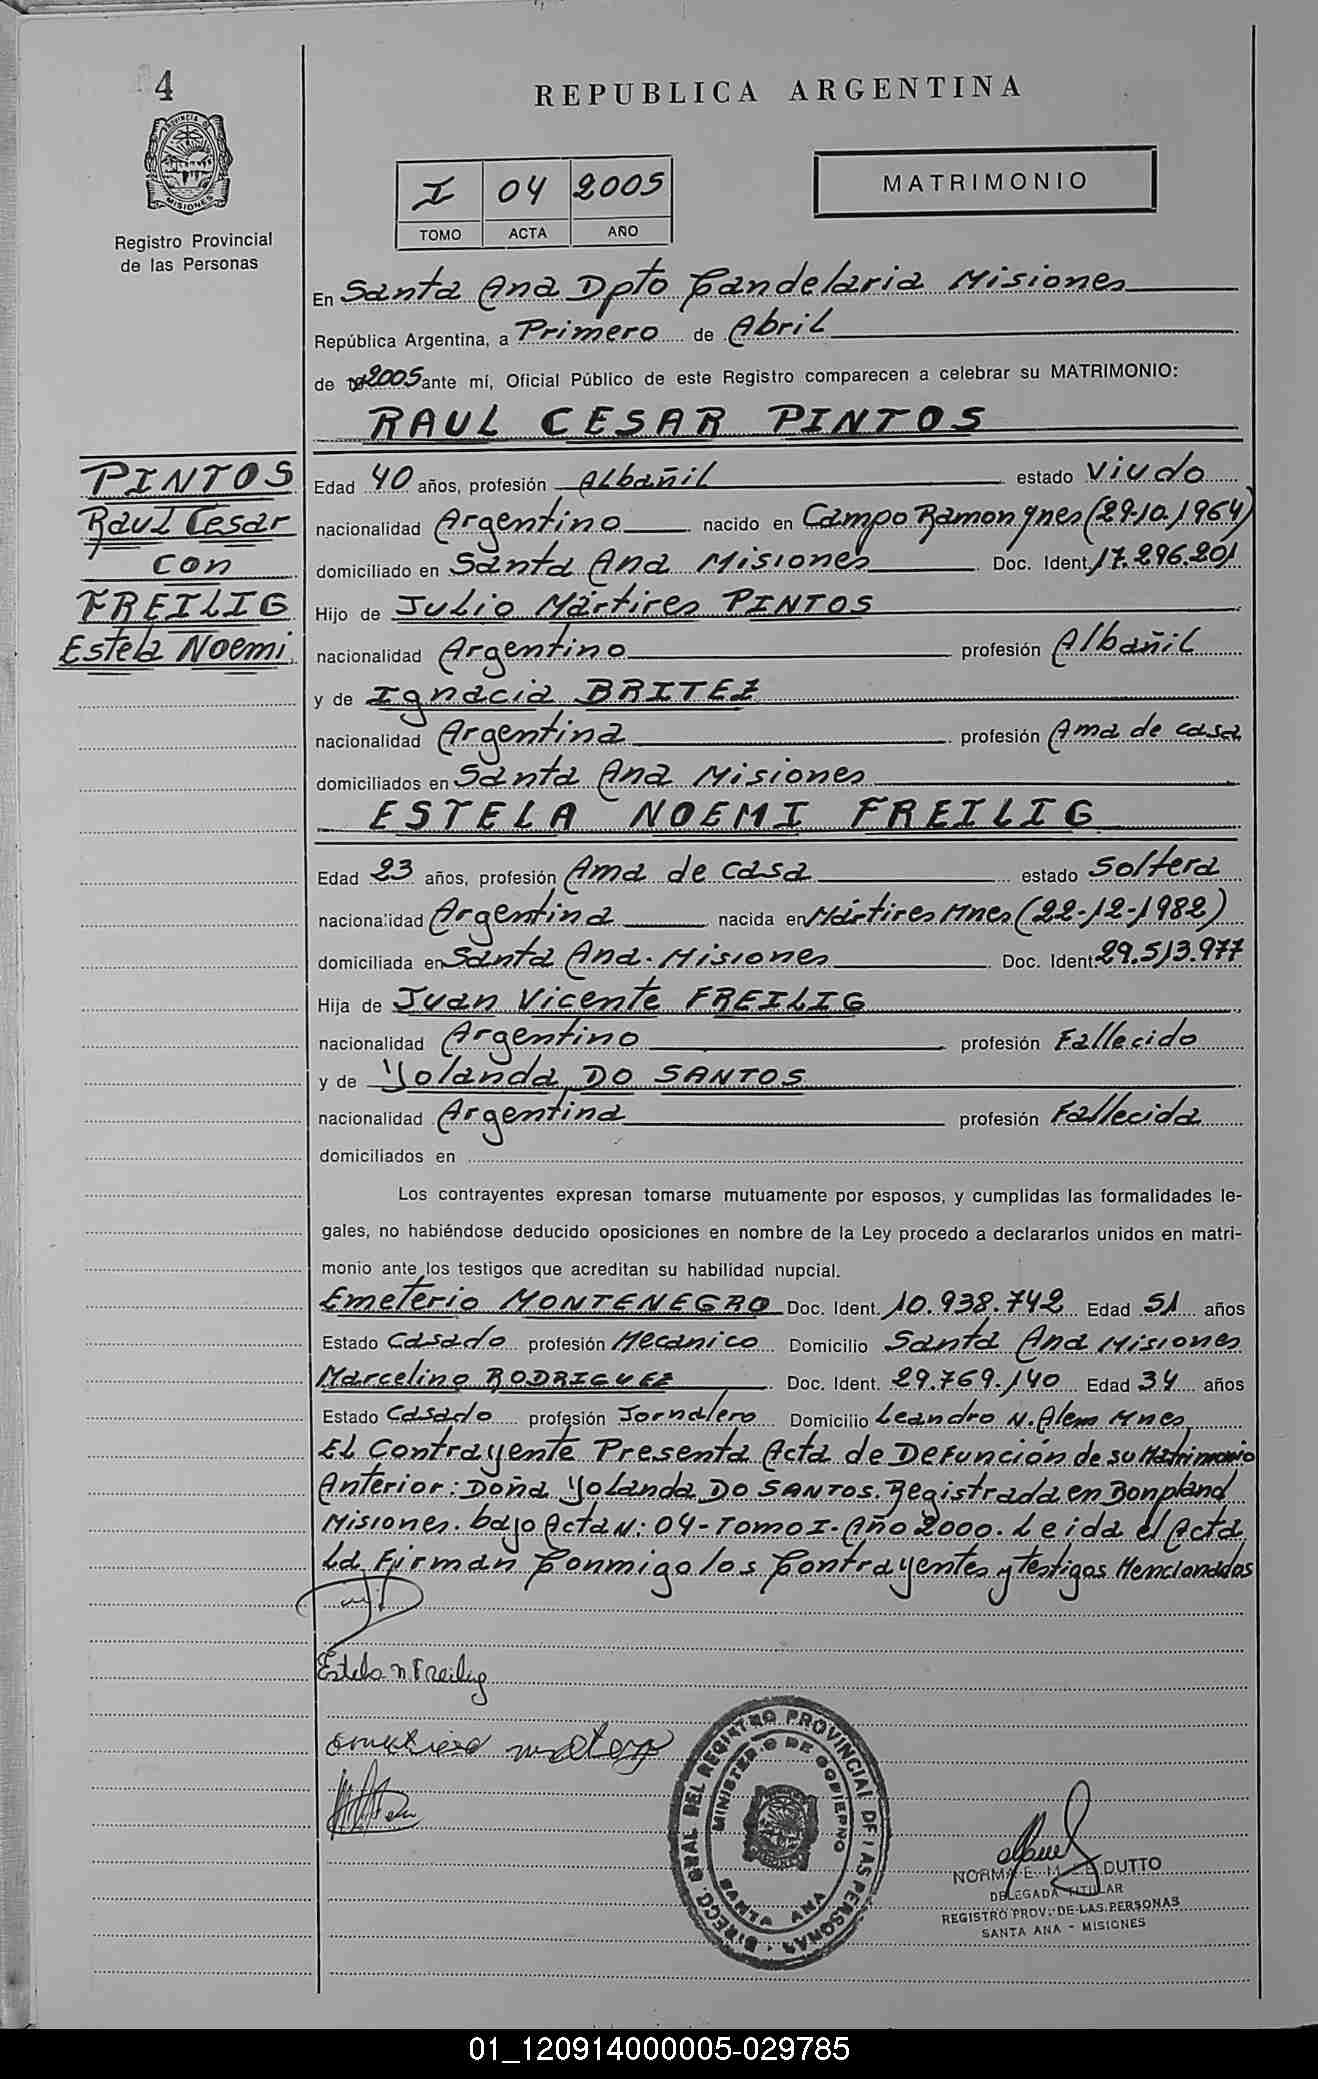 4
REPUBLICA ARGENTINA
PROVINCIA DE MISIONES
Registro Provincial
de las Personas
I 04 2005
TOMO ACTA AÑO
MATRIMONIO
En Santa Ana Dpto Candelaria Misiones
República Argentina, a Primero de Abril
de 2005 ante mí, Oficial Público de este Registro comparecen a celebrar su MATRIMONIO:
RAUL CESAR PINTOS
PINTOS
Raul Cesar
con
FREILIG
Estela Noemi
Edad 40 años, profesión Albañil estado Viudo
nacionalidad Argentino nacido en Campo Ramon Mnes (29.10.1964)
domiciliado en Santa Ana Misiones Doc. Ident. 17.296.201
Hijo de Julio Mártires PINTOS
nacionalidad Argentino profesión Albañil
y de Ignacia BRITEZ
nacionalidad Argentina profesión Ama de casa
domiciliados en Santa Ana Misiones
ESTELA NOEMI FREILIG
Edad 23 años, profesión Ama de casa estado Soltera
nacionalidad Argentina nacida en Mártires Mnes (22-12-1982)
domiciliada en Santa Ana. Misiones Doc. Ident. 29.513.977
Hija de Juan Vicente FREILIG
nacionalidad Argentino profesión Fallecido
y de Yolanda DO SANTOS
nacionalidad Argentina profesión Fallecida
domiciliados en
Los contrayentes expresan tomarse mutuamente por esposos, y cumplidas las formalidades le-
gales, no habiéndose deducido oposiciones en nombre de la Ley procedo a declararlos unidos en matri-
monio ante los testigos que acreditan su habilidad nupcial.
Emeterio MONTENEGRO Doc. Ident. 10.938.742 Edad 51 años
Estado Casado profesión Mecanico Domicilio Santa Ana Misiones
Marcelino RODRIGUEZ Doc. Ident. 29.769.140 Edad 34 años
Estado Casado profesión Jornalero Domicilio Leandro N. Alem Mnes
El Contrayente Presenta Acta de Defunción de su Matrimonio
Anterior: Doña Yolanda DO SANTOS. Registrada en Bonpland
Misiones. bajo Acta N: 04 - Tomo I. Año 2000. Leida el Acta
La Firman Conmigo los Contrayentes y Testigos Mencionados
Estela N Freilig
DIRECC. GRAL DEL REGISTRO PROVINCIAL DE LAS PERSONAS
MINISTERIO DE GOBIERNO
SANTA ANA
NORMA E. M. DUTTO
DELEGADA TITULAR
REGISTRO PROV. DE LAS PERSONAS
SANTA ANA - MISIONES
01_120914000005-029785